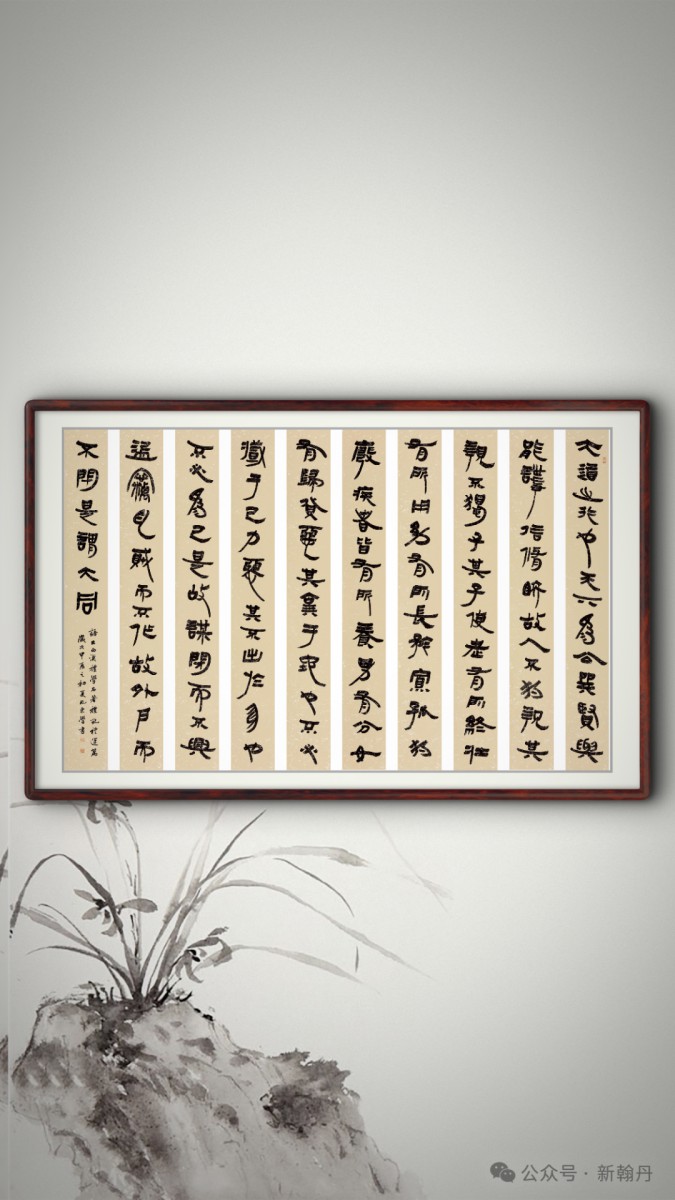 大道之行也天下為公選賢與
能講信脩睦故人不獨親其
親不獨子其子使老有所終壯
有所用幼有所長矜寡孤獨
廢疾者皆有所養男有分女
有歸貨惡其棄于地也不必
藏于己力惡其不出於身也
不必為己是故謀閉而不興
盜竊亂賊而不作故外戶而
不閉是謂大同
語出西漢禮學名著禮記禮運篇
歲次甲辰之初夏學書
公众号 · 新翰丹